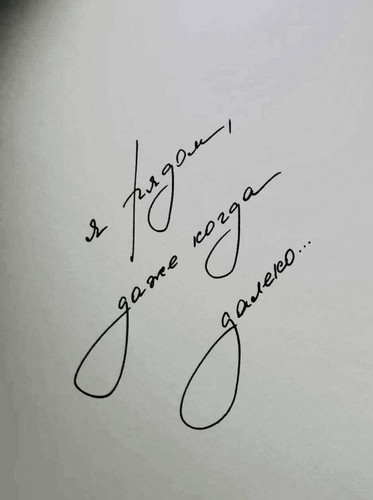 я рядом,
даже когда
далеко...